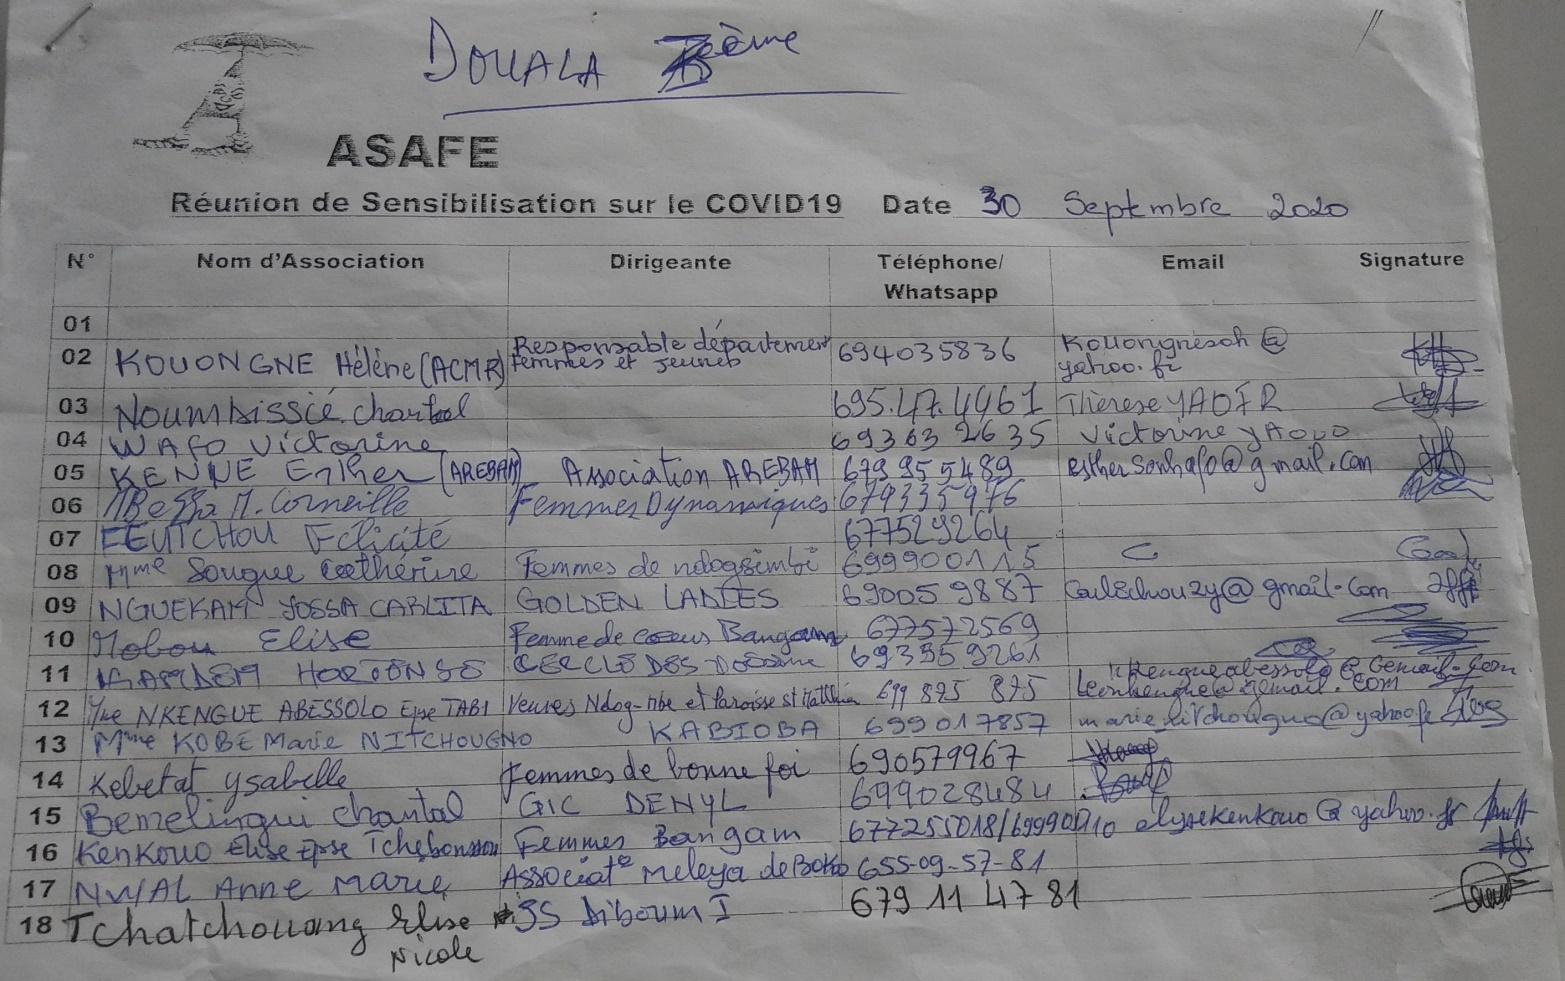 DOUALA ème
ASAFE
Réunion de Sensibilisation sur le COVID19 Date 30 Septembre 2020
N° Nom d'Association Dirigeante Téléphone/ Whatsapp Email Signature
01
02 KOUONGNE Hélène (ACMR) Responsable département femmes et jeunes 694035836 yahoo.fr
03 Noumbissié chantal 695.47.4461 Thérèse YAOFR
04 WAFO Victorine 693632635 Victorine YAOOO
05 KENNE Esther (AREBAM) Association AREBAM 679955489 @gmail.com
06 M. Corneille Femmes Dynamiques 679335976
07 FEUTCHOU Félicité 677529264
08 Mme Sougue catherine Femmes de ndogsimbi 699900115
09 NGUEKAM JOSSIA CARLITA GOLDEN LADIES 690059887 @gmail.com
10 Mobou Elise Femme de coeurs Bangam 677572569
11 HORTENSE CERCLE DES 693959261
12 NKENGUE ABESSOLO Epse TABI Veuves Ndog-mbe et Paroisse st 699 895 875 leonkengue@gmail.com
13 Mme KOBE Marie NITCHOUGNO KABIOBA 699017857
14 Kebetat Ysabelle Femmes de bonne foi 690579967
15 Bemelingui chantal GIC DENYL 699028484
16 Kenkouo Elise Epse Femmes Bangam 677255018/ elysekenkouo@yahoo.fr
17 NWAL Anne Marie Associat° Meleya de 655-09-57-81
18 Tchatchouang Elise SS Diboum I 679 11 47 81
Nicole